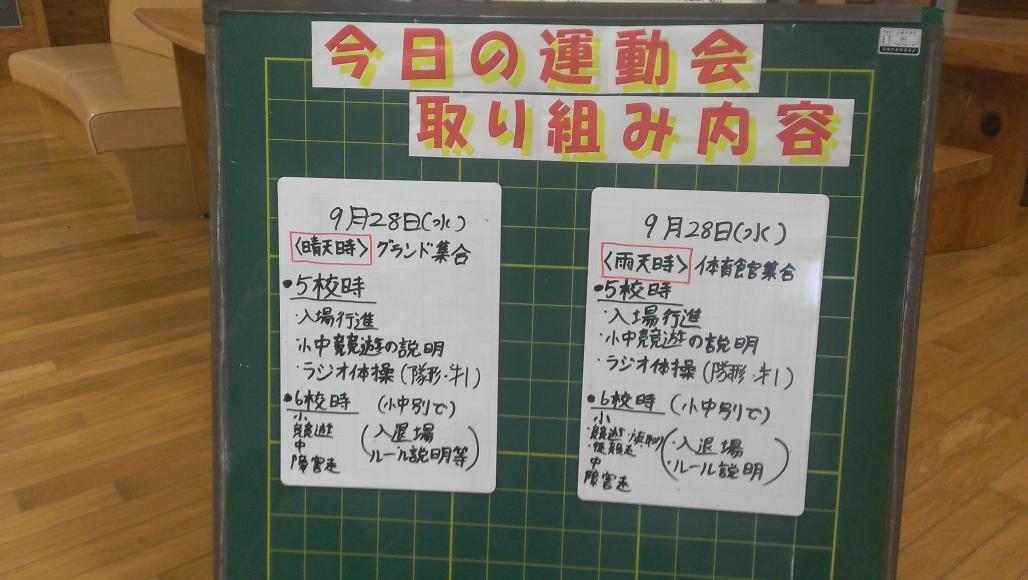 今日の運動会
取り組み内容
9月28日(水)
<晴天時> グランド集合
・5校時
・入場行進
・小中競遊の説明
・ラジオ体操(隊形・
・6校時 (小中別で)
小
競遊
中
障害走
(入退場
ルール説明等)
9月28日(水)
<雨天時> 体育館集合
・5校時
・入場行進
・小中競遊の説明
・ラジオ体操(隊形・
・6校時 (小中別で)
小
・競遊
中
障害走
(・入退場
・ルール説明)